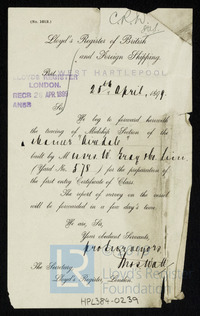 (No. 1012.)
C.R.W.
Lloyd's Register of British
and Foreign Shipping.
Port WEST HARTLEPOOL
LLOYDS REGISTER
LONDON.
RECD 26 APL 1899
ANSD
25th April, 1899.
Sir,
We beg to forward herewith
the tracing of Midship Section of the
Steamer
built by Messrs W. Gray & Co. Lim
(Yard No. 578) for the preparation of
the first entry Certificate of Class
The report of survey on the vessel
will be forwarded in a few day's time.
We are, Sir,
Your obedient Servants,
pro Surveyors
The Secretary
Lloyd's Register, London.
Lloyd's Register
Foundation
HPL384-0239